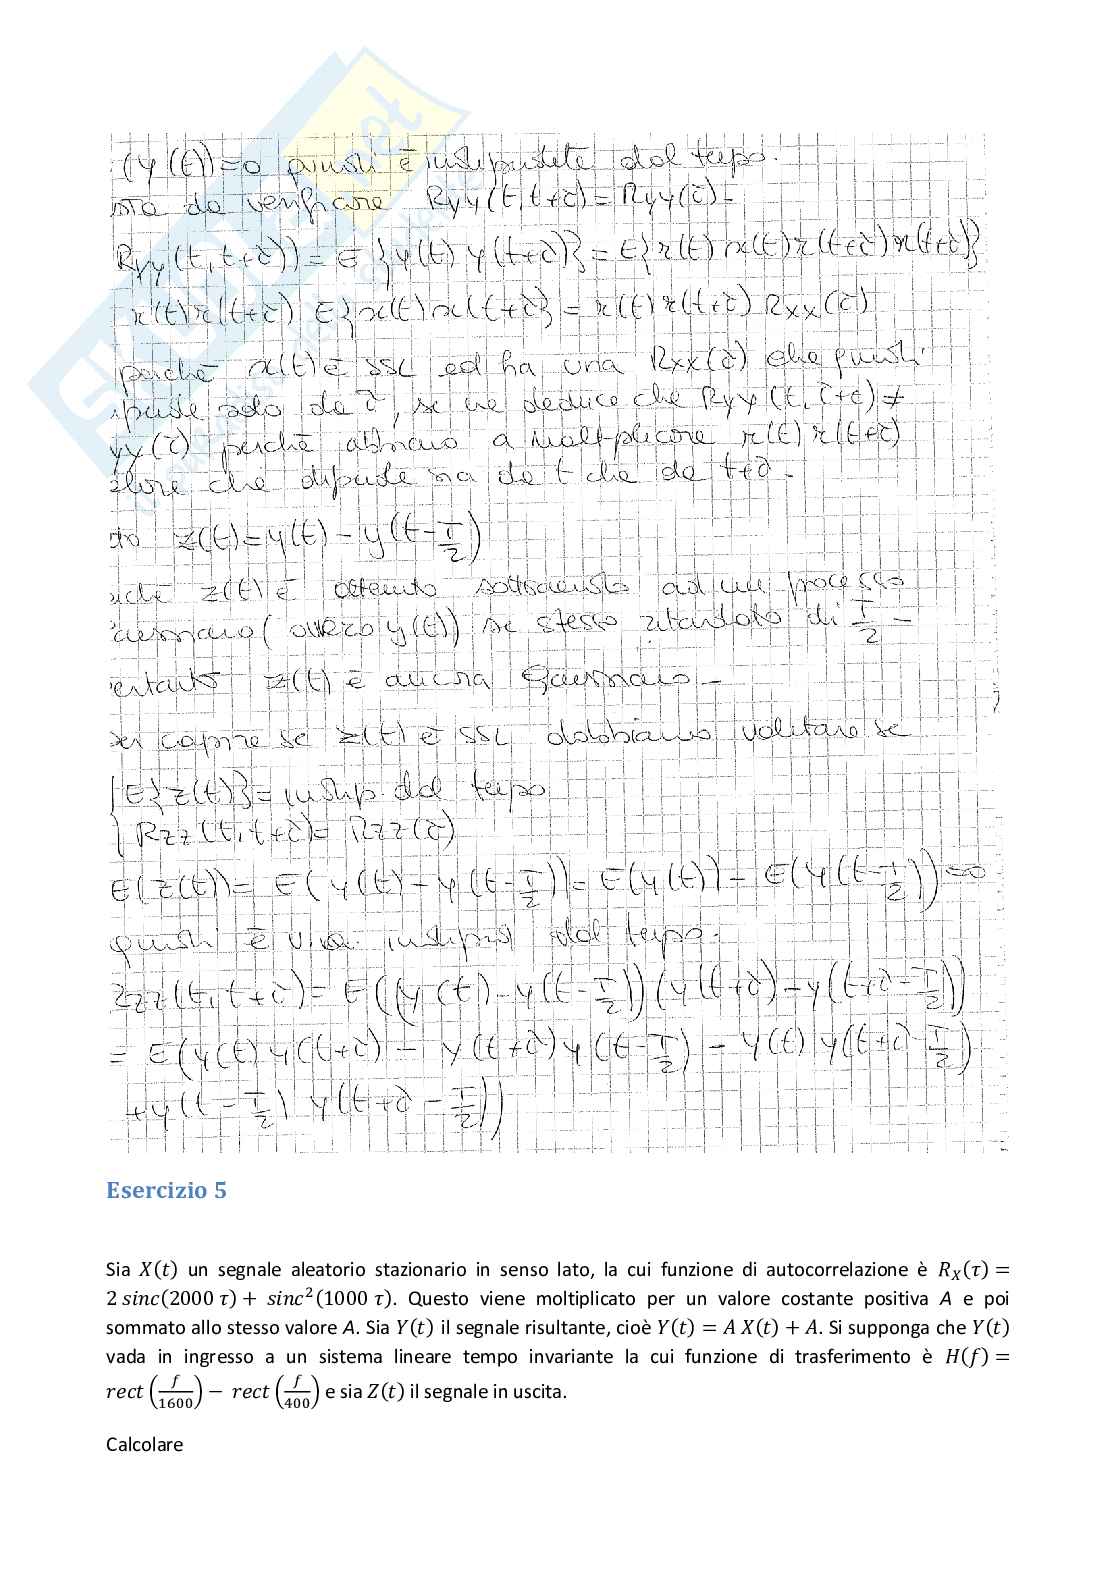 (y(t))=0 quindi è indipendente dal tempo.
da verificare Ryy(t,t+τ)=Ryy(τ)-
Ryy(t,t+τ))=E{y(t) y(t+τ)}=E{r(t) x(t) r(t+τ) x(t+τ)}
r(t) r(t+τ) E{x(t) x(t+τ)} = r(t) r(t+τ) Rxx(τ)
perché x(t) è SSL ed ha una Rxx(τ) che quindi
solo da τ, se ne deduce che Ryy(t,τ+t) ≠
yy(τ) perché abbiamo a moltiplicare r(t) r(t+τ)
che dipende sia da t che da t+τ -
z(t)=y(t) - y(t-T/2)
z(t) è ottenuto sottraendo ad un processo
(ovvero y(t)) se stesso ritardato di T/2 -
z(t) è ancora Gaussiano -
capire se z(t) è SSL dobbiamo valutare se
E{z(t)}= indip. dal tempo
Rzz(t,t+τ)=Rzz(τ)
E(z(t))= E(y(t)-y(t-T/2))=E(y(t))-E(y(t-T/2))=0
quindi è indipend dal tempo.
Rzz(t,t+τ)= E((y(t)-y(t-T/2))(y(t+τ)-y(t+τ-T/2))
= E(y(t) y(t+τ) - y(t+τ) y(t-T/2) - y(t) y(t+τ-T/2)
+y(t-T/2) y(t+τ-T/2))
Esercizio 5
Sia X(t) un segnale aleatorio stazionario in senso lato, la cui funzione di autocorrelazione è R_X(τ) =
2 sinc(2000 τ) + sinc²(1000 τ). Questo viene moltiplicato per un valore costante positiva A e poi
sommato allo stesso valore A. Sia Y(t) il segnale risultante, cioè Y(t) = A X(t) + A. Si supponga che Y(t)
vada in ingresso a un sistema lineare tempo invariante la cui funzione di trasferimento è H(f) =
rect(f/1600) − rect(f/400) e sia Z(t) il segnale in uscita.
Calcolare